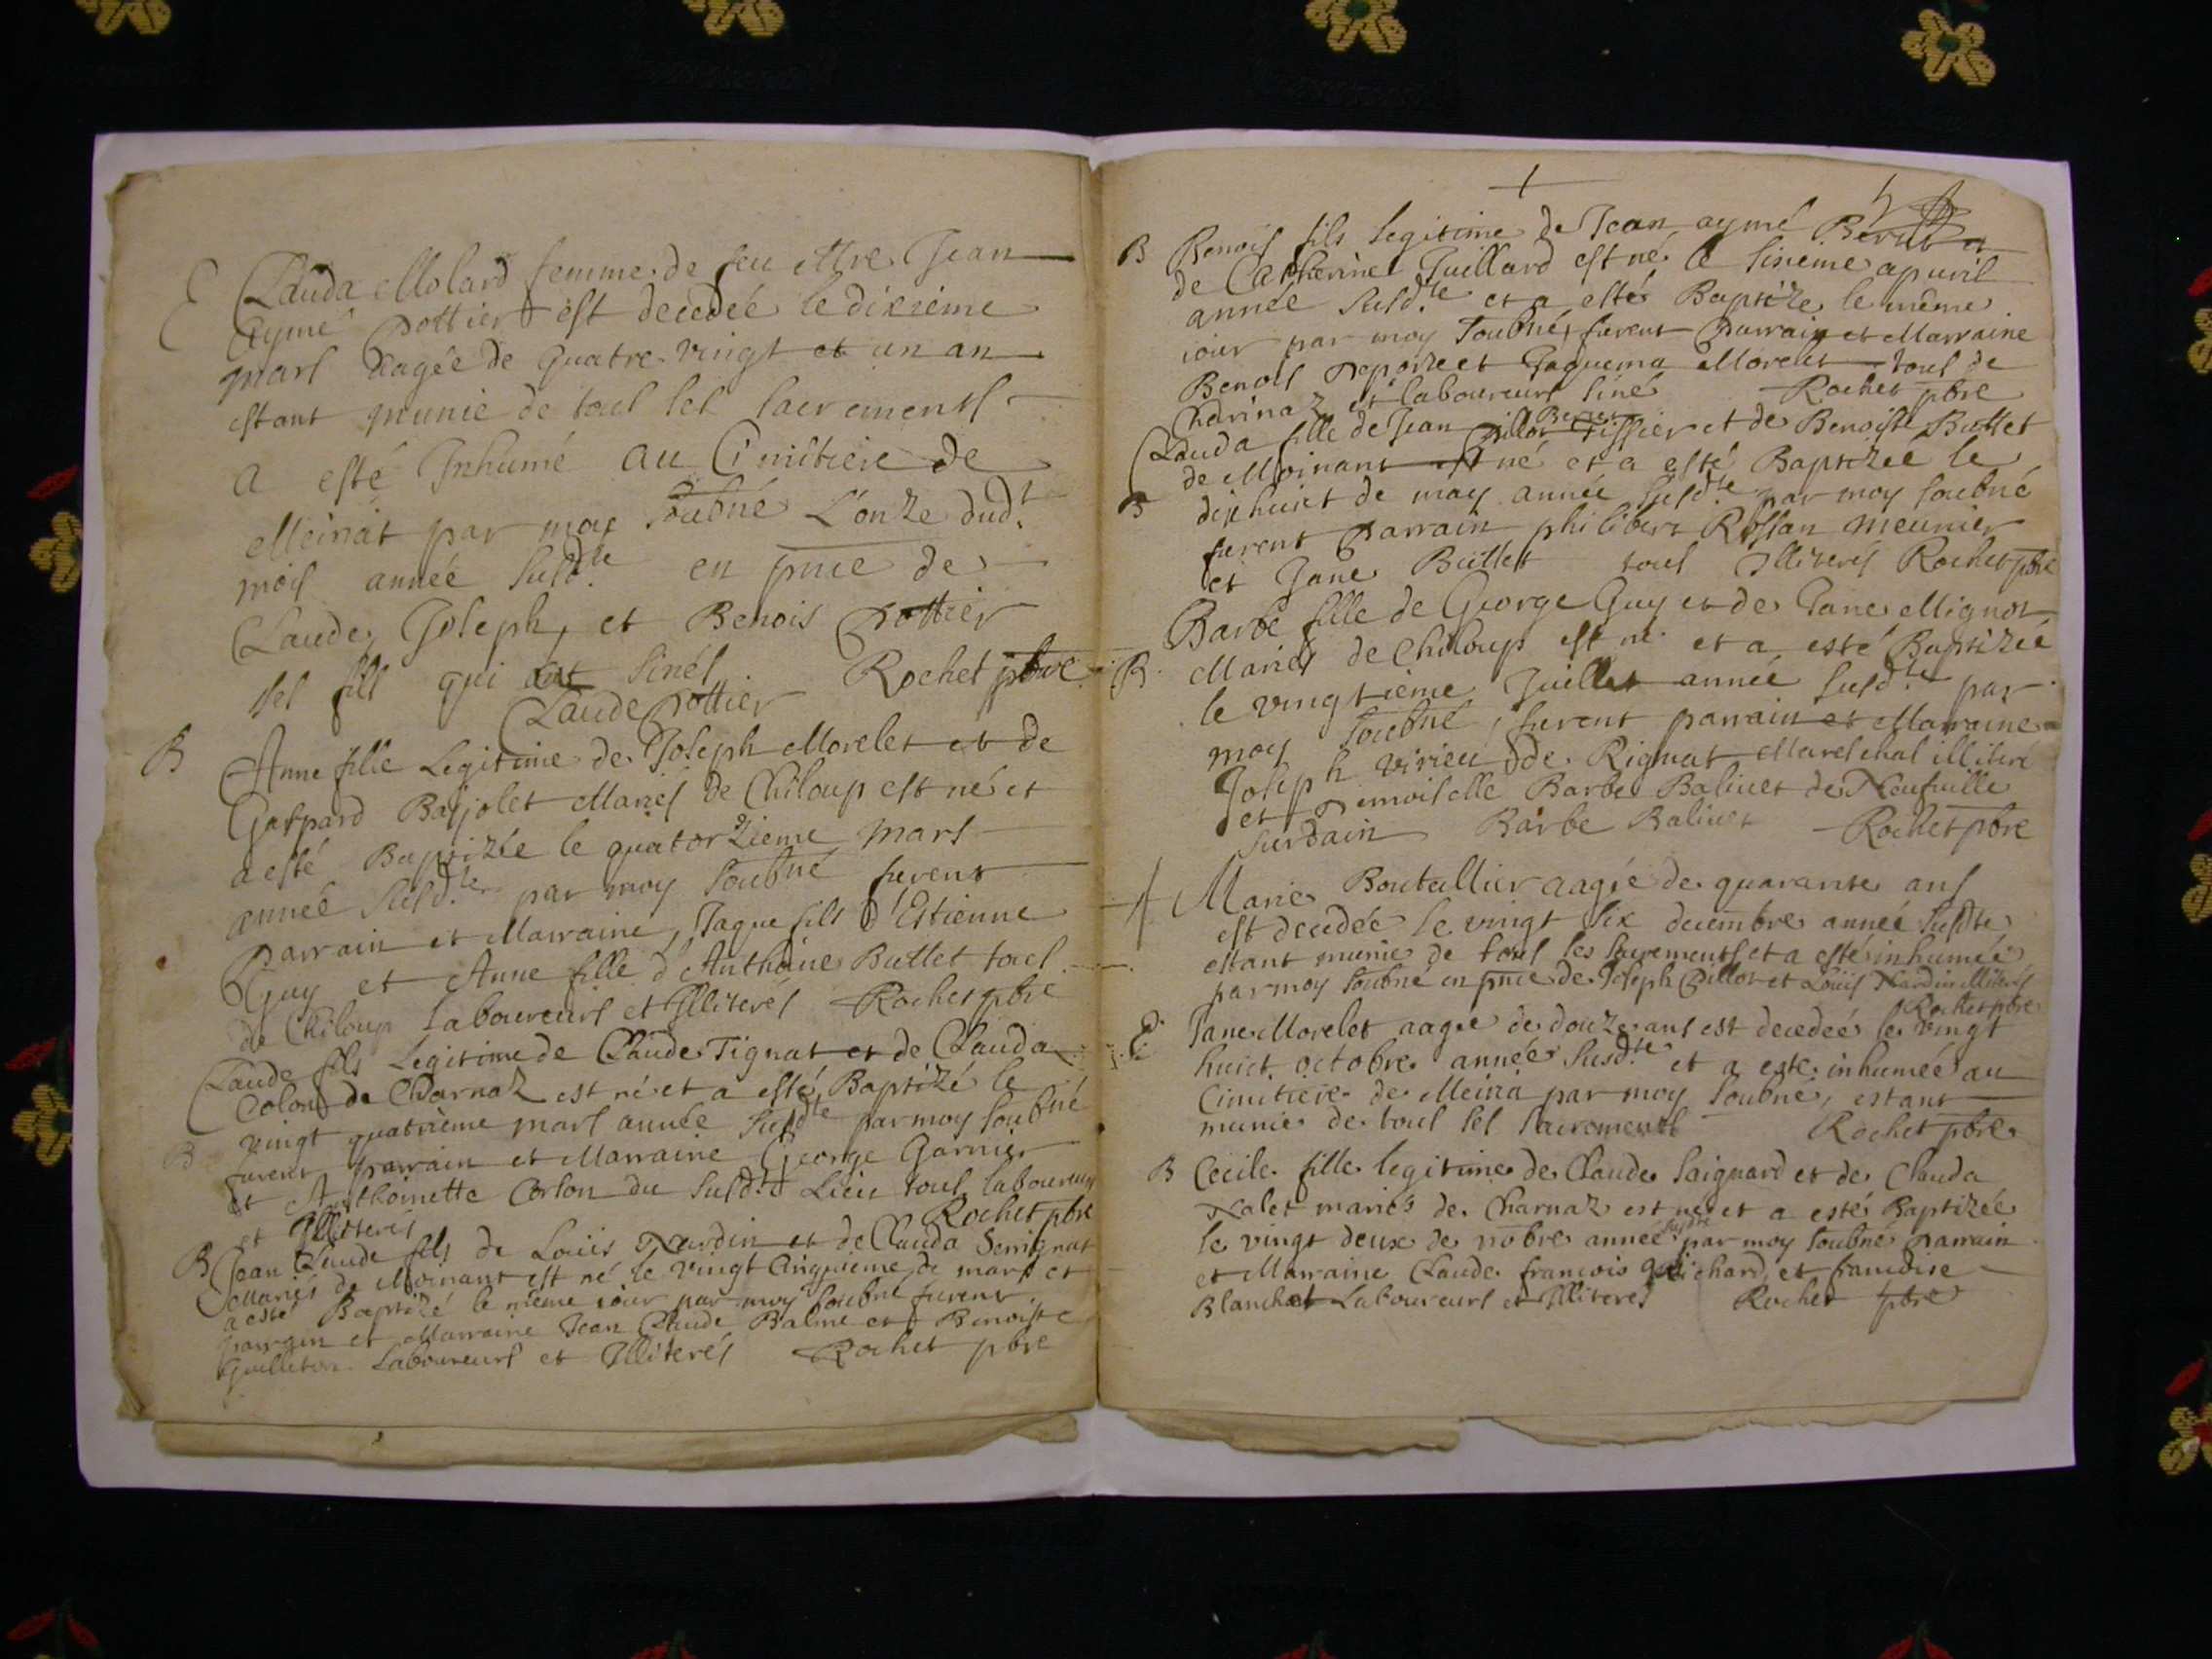 E Clauda Molard femme de feu Mre Jean
Aymé Pottier est decedée le dixieme
mars aagée de quatre vingt et un an
estant munie de tous les sacrements
a esté Inhumé au Cimitiere de
Meinat par moy soubné L'onze dudt
mois année susdte en pnce de
Claude, Joseph, et Benois Pottier
ses fils qui ont sinés Rochet pbre
Claude Pottier
B Anne fille Legitime de Joseph Morelet et de
Gaspard Basjolet Mariés de Chiloup est né et
a esté Baptizée le quatorzieme mars
année susdte par moy soubné furent
Parrain et Marraine, Jaque fils d'Estienne
Guy et Anne fille d'Anthoine Buttet tous
de Chiloup Laboureurs et Illiterés Rochet pbre
Claude fils Legitime de Claude Tignat et de Clauda
Colon de Charnaz est né et a esté Baptizé le
B vingt quatrième mars année susdte par moy soubné
furent parrain et Marraine George Garnier
et Anthoinette Corlon du susdt Lieu tous laboureurs
et Illiterés Rochet pbre
B Jean Claude fils de Louis Nardin et de Clauda Serrignat
Mariés de Moinant est né le vingt Cinquieme de mars et
a esté Baptizé le même iour par moy soubné furent
parrain et Marraine Jean Claude Balme et Benoiste
Guilleton Laboureurs et Illiterés Rochet pbre
B Benois fils legitime de Jean aymé
de Catherine Juillard est né le sixieme apuril
année susdte et a estés Baptizé le même
iour par moy soubné, furent Parrain et Marraine
Benois et Jaquema Morelet tous de
Charinaz et laboureurs siné Rochet pbre
Clauda fille de Jean Pillot Tissier et de Benoiste Buttet
de Moinant est né et a esté Baptizée le
B dixhuict de may année susdte par moy soubné
furent Parrain philibert Rossan meunier
et Jane Buttet tous Illiterés Rochet pbre
Barbe fille de George Guy et de Jane Mignot
B Mariés de Chiloup est né et a esté Baptizée
le vingtième Juillet année susdte par
moy soubné, furent parrain et Marraine
Joseph Virieu de Rignat Mareschal illiteré
et Demoiselle Barbe Balivet de Neufuille
surdain Barbe Balivet Rochet pbre
Marie Boutellier aagée de quarante ans
est decedée le vingt six decembre année susdte
estant munie de tous les sacrements et a esté inhumée
par moy soubné en pnce de Joseph Pillot et Louis Nardin illiterés
Rochet pbre
E Jane Morelet aagée de douze ans est decedeé le vingt
huict octobre année susdte et a este inhumée au
Cimitiere de Meina par moy soubné, estant
munie de tous les sacrements Rochet pbre
B Cecile fille legitime de Claude saignard et de Clauda
Nalet mariés de Charnaz est né et a estés Baptizée
le vingt deux de nobre année susdte par moy soubné Parrain
et Marraine Claude francois Guichard, et francoise
Blanchet Laboureurs et Illiteres Rochet pbre